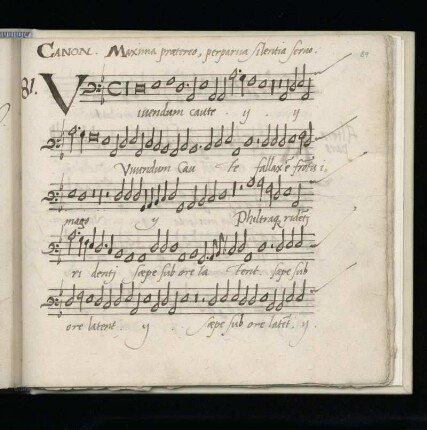 CANON. Maxima prætereo, perparua silentia seruo.
81.
Viuendum caute ij ij
Viuendum Cau te fallax ē frōtis i,
mago ij Philtraq ridēti
ri denti sæpe sub ore la tent sæpe sub
ore latent ij sæpe sub ore latēt. ij